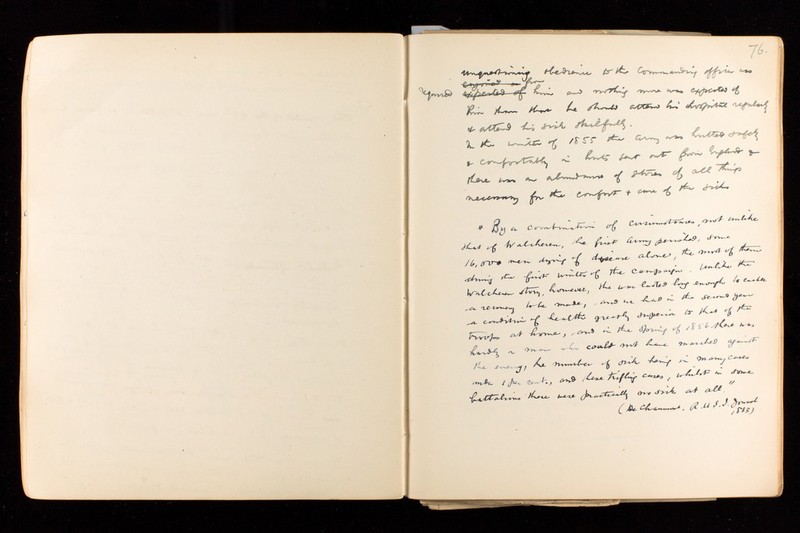 76.
unquestioning obedience to the commanding officer was
enjoined on him
required expected of him and nothing more was expected of
him than that he should attend his hospital regularly
& attend his sick skilfully.
In the winter of 1855 the army was hutted safely
& comfortably in huts sent out from England &
there was an abundance of stores of all things
necessary for the comfort & care of the sick
" By a combination of circumstances, not unlike
that of Walcheren, the first army perished, some
16,000 men dying of disease alone, the most of them
during the first winter of the campaign. Unlike the
Walcheren story, however, the war lasted long enough to enable
a recovery to be made, and we had in the second year
a condition of health greatly superior to that of the
troops at home, and in the spring of 1856 there was
hardly a man who could not have marched against
the enemy, the number of sick being in many cases
under 1 per cent., and these trifling cases, whilst in some
battalions there were practically no sick at all "
(De Chaumont. R.U.S.I. Journal